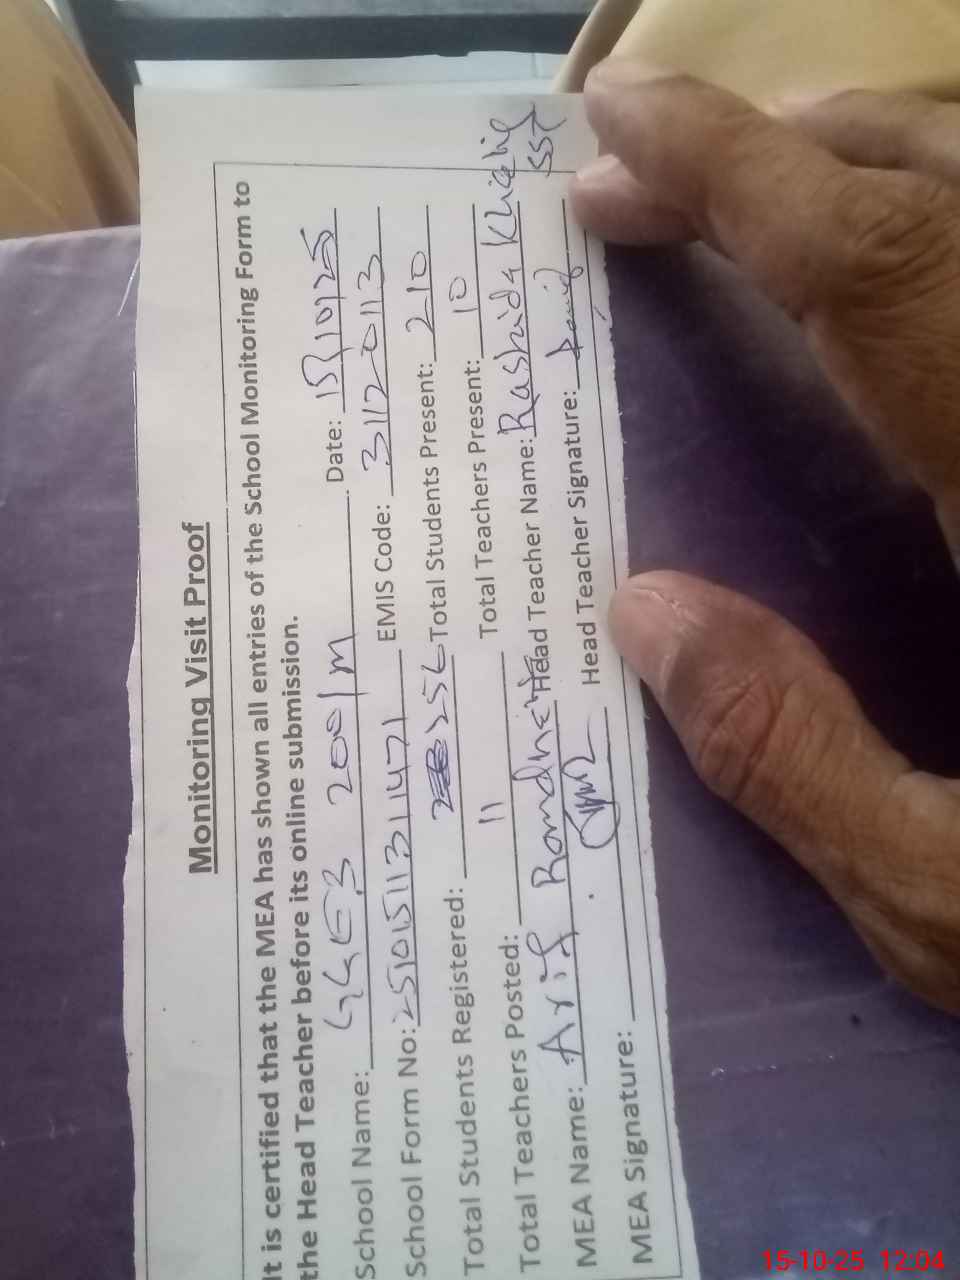 Monitoring Visit Proof
It is certified that the MEA has shown all entries of the School Monitoring Form to
the Head Teacher before its online submission.
School Name: GGES 200/M Date: 15/10/25
School Form No: 25101511311471 EMIS Code: 31120113
Total Students Registered: 256 Total Students Present: 210
Total Teachers Posted: 11 Total Teachers Present: 10
MEA Name: Arif Head Teacher Name: Rashida
SST
MEA Signature: Head Teacher Signature:
15-10-25 12:04